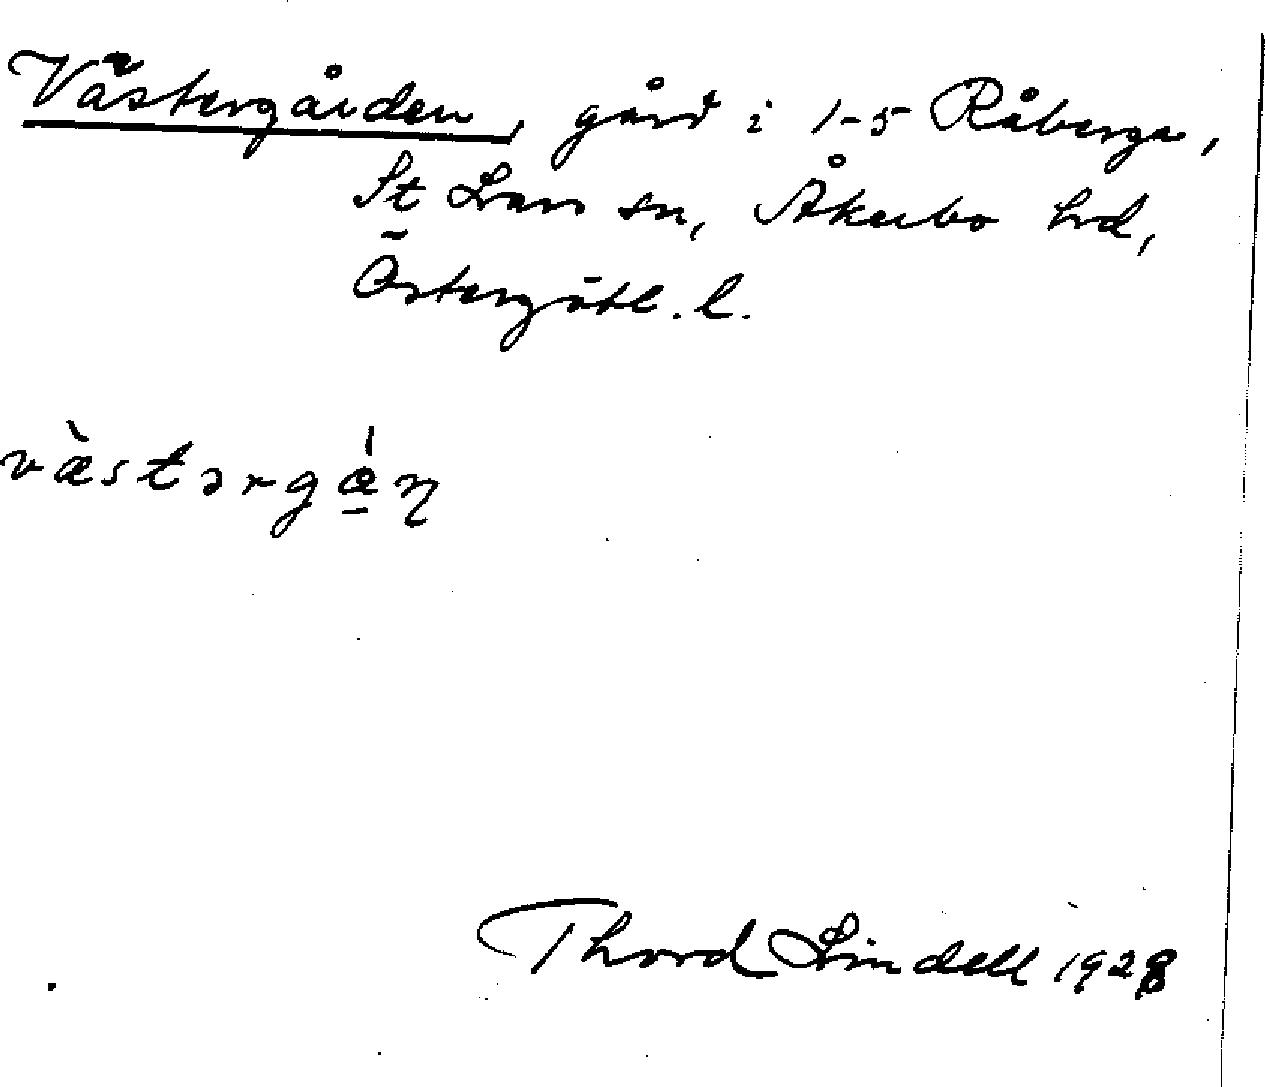 Västergården, gård i 1-5 Råberga,
St Lars sn, Åkerbo hd,
Östergötl. l.
væ̀stərgǻ̱ɳ
Thord Lindell 1928